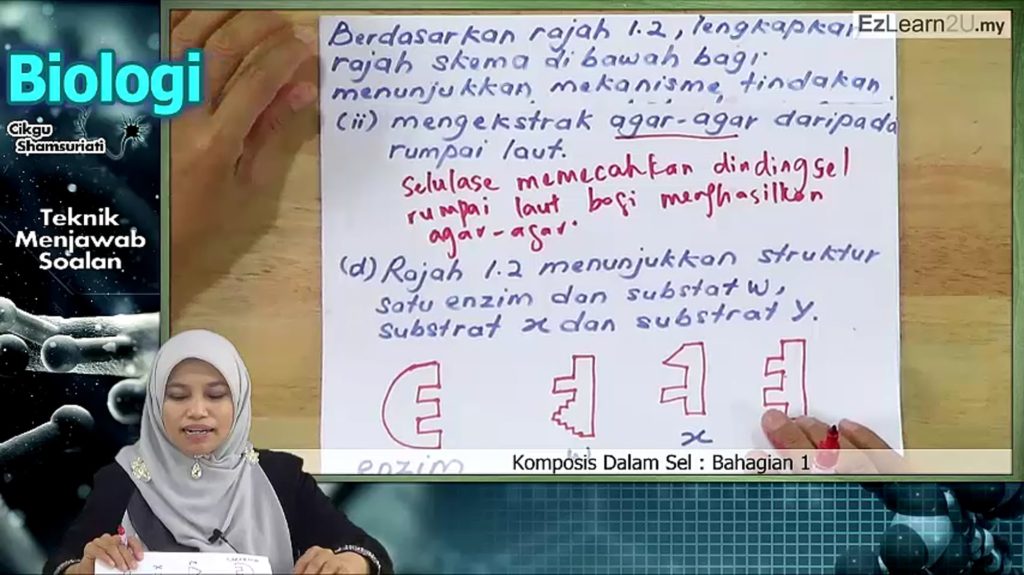 Biologi
Cikgu
Shamsuriati
Teknik
Menjawab
Soalan
EzLearn2U.my
Berdasarkan rajah 1.2, lengkapkan
rajah skema di bawah bagi
menunjukkan mekanisme tindakan
(ii) mengekstrak agar-agar daripada
rumpai laut.
Selulase memecahkan dinding sel
rumpai laut bagi menghasilkan
agar-agar.
(d) Rajah 1.2 menunjukkan struktur
satu enzim dan substat W,
substrat x dan substrat y.
enzim
x
Komposis Dalam Sel : Bahagian 1